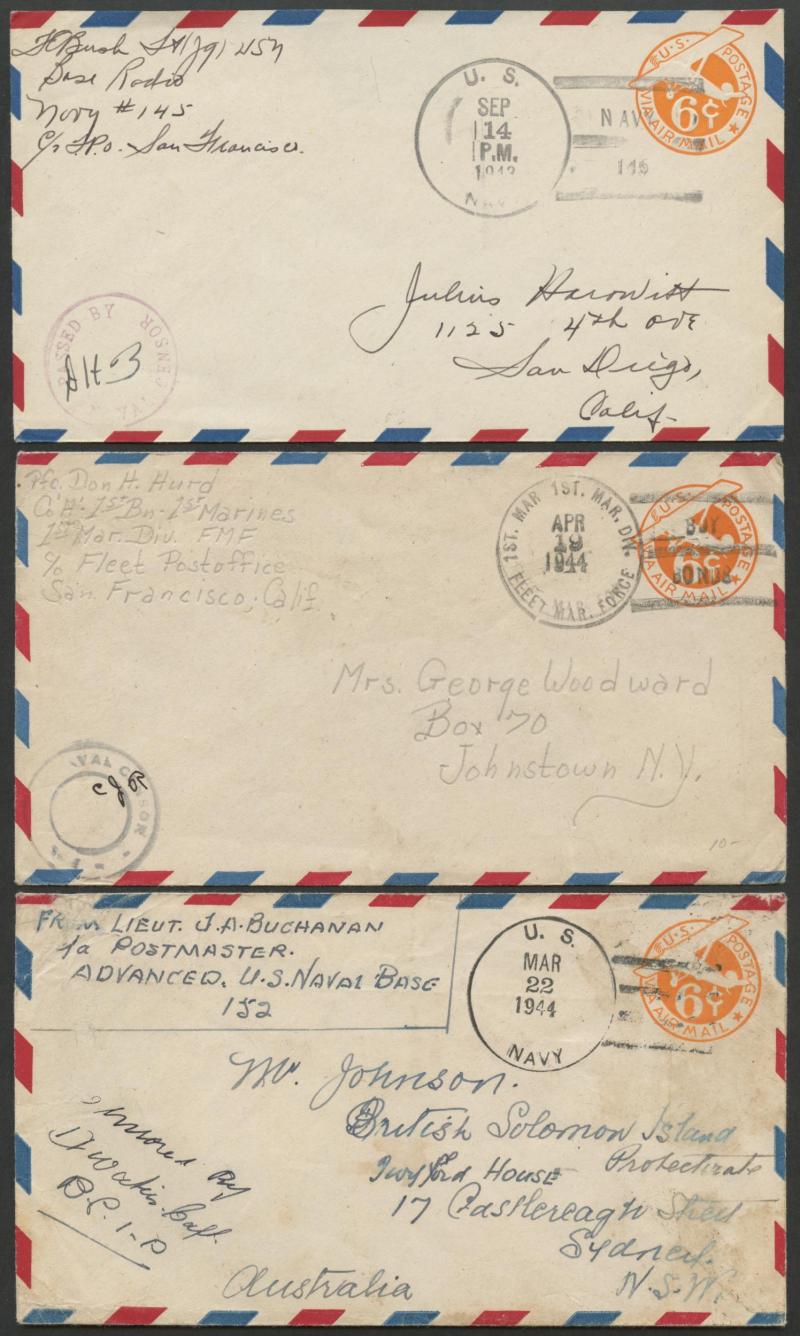 Bush Lt (jg) USN
Base Radio
Navy #145
c/o F.P.O. San Francisco.
U. S.
SEP
14
P.M.
1943
NAVY
NAVY
145
U.S. POSTAGE
6¢
VIA AIR MAIL
Julius Harowitt
1125 4th Ave
San Diego,
Calif.
PASSED BY
CENSOR
Pfc. Don H. Hurd
Co 'H' 1st Bn. 1st Marines
1st Mar. Div. FMF
c/o Fleet Postoffice
San Francisco, Calif.
1ST. MAR 1ST. MAR. DIV.
APR
19
1944
FLEET MAR. FORCE
BUY
BONDS
U.S. POSTAGE
6¢
VIA AIR MAIL
Mrs. George Woodward
Box 70
Johnstown N.Y.
CJR
10-
FROM LIEUT. J.A. BUCHANAN
POSTMASTER.
ADVANCED. U.S. NAVAL BASE
152
U. S.
MAR
22
1944
NAVY
U.S. POSTAGE
6¢
VIA AIR MAIL
Mr. Johnson.
British Solomon Island
Protectorate
Twyford HOUSE
17 Castlereagh Street
Sydney.
N.S.W.
Australia
By